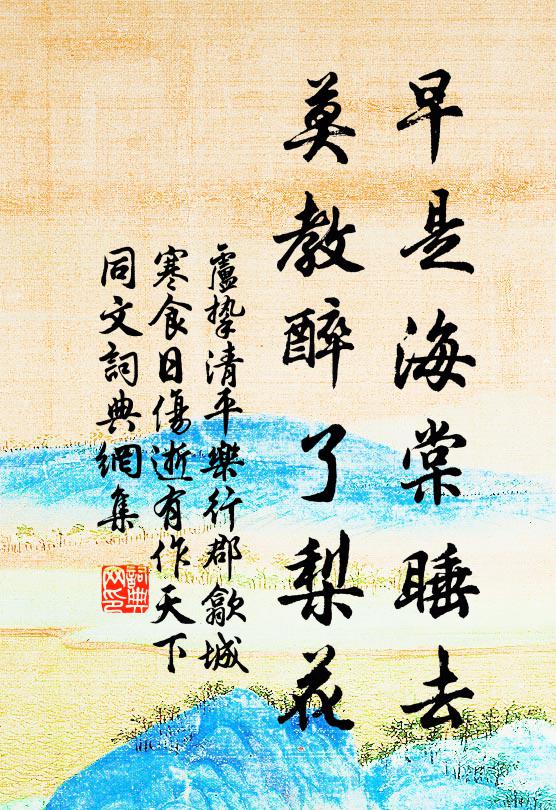 早是海棠睡去
莫教醉了梨花
盧摯清平樂行郡歙城
寒食日傷逝有作天下
同文詞典網集
詞典網印